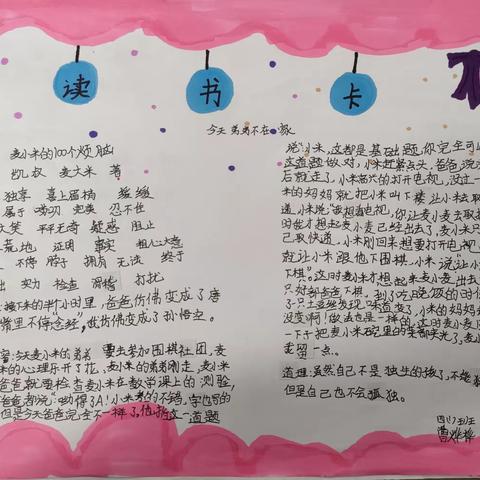 读 书 卡
今天弟弟不在家
麦小米的100个烦脑
凯叔 麦大米 著
独享 喜上眉梢
属于 唠叨 完美 忍不住
大笑 平平无奇 疑惑 阻止
荒地 证明 事实 粗心大意
不停 脖子 拥有 无法 终于
出 实力 检查 滑稽 打扰
接下来的半小时里,爸爸仿佛变成了唐
嘴里不停"念经",我仿佛变成了孙悟空。
今天麦小米的弟弟 要去参加围棋社团,麦
米的心里乐开了花,麦小米的弟弟刚走,麦小米
爸爸就要检查麦小米在数学课上的测验,
爸爸都说"哟得了A!小米考的不错,字也写的
但是今天爸爸完全不一样了,他指这一道题
说"小米,这都是基础题,你完全可以
这道题做对,小米赶紧点头,爸爸说完
后就走了,小米高兴的打开电视,没过一
米的妈妈就把小米叫下楼让小米去取
递,小米说"我想看电视,你让麦小麦去取快
时她才想起麦小麦已经出去了,小米只
己取快递,小米刚回来想要打开电视,
就让小米跟他下围棋,小米说"让小
下棋",这时麦小米才想起来麦小麦出去
只好和爸爸下棋,到了吃晚饭的时候
没变啊!做法也是一样的,这时麦小麦
一下子把麦小米碗里的菜都夹光了,麦小
卖留一点。
道理:虽然自己,不是 独生的孩子,不能
但是自己也不会孤独。
四(1)班